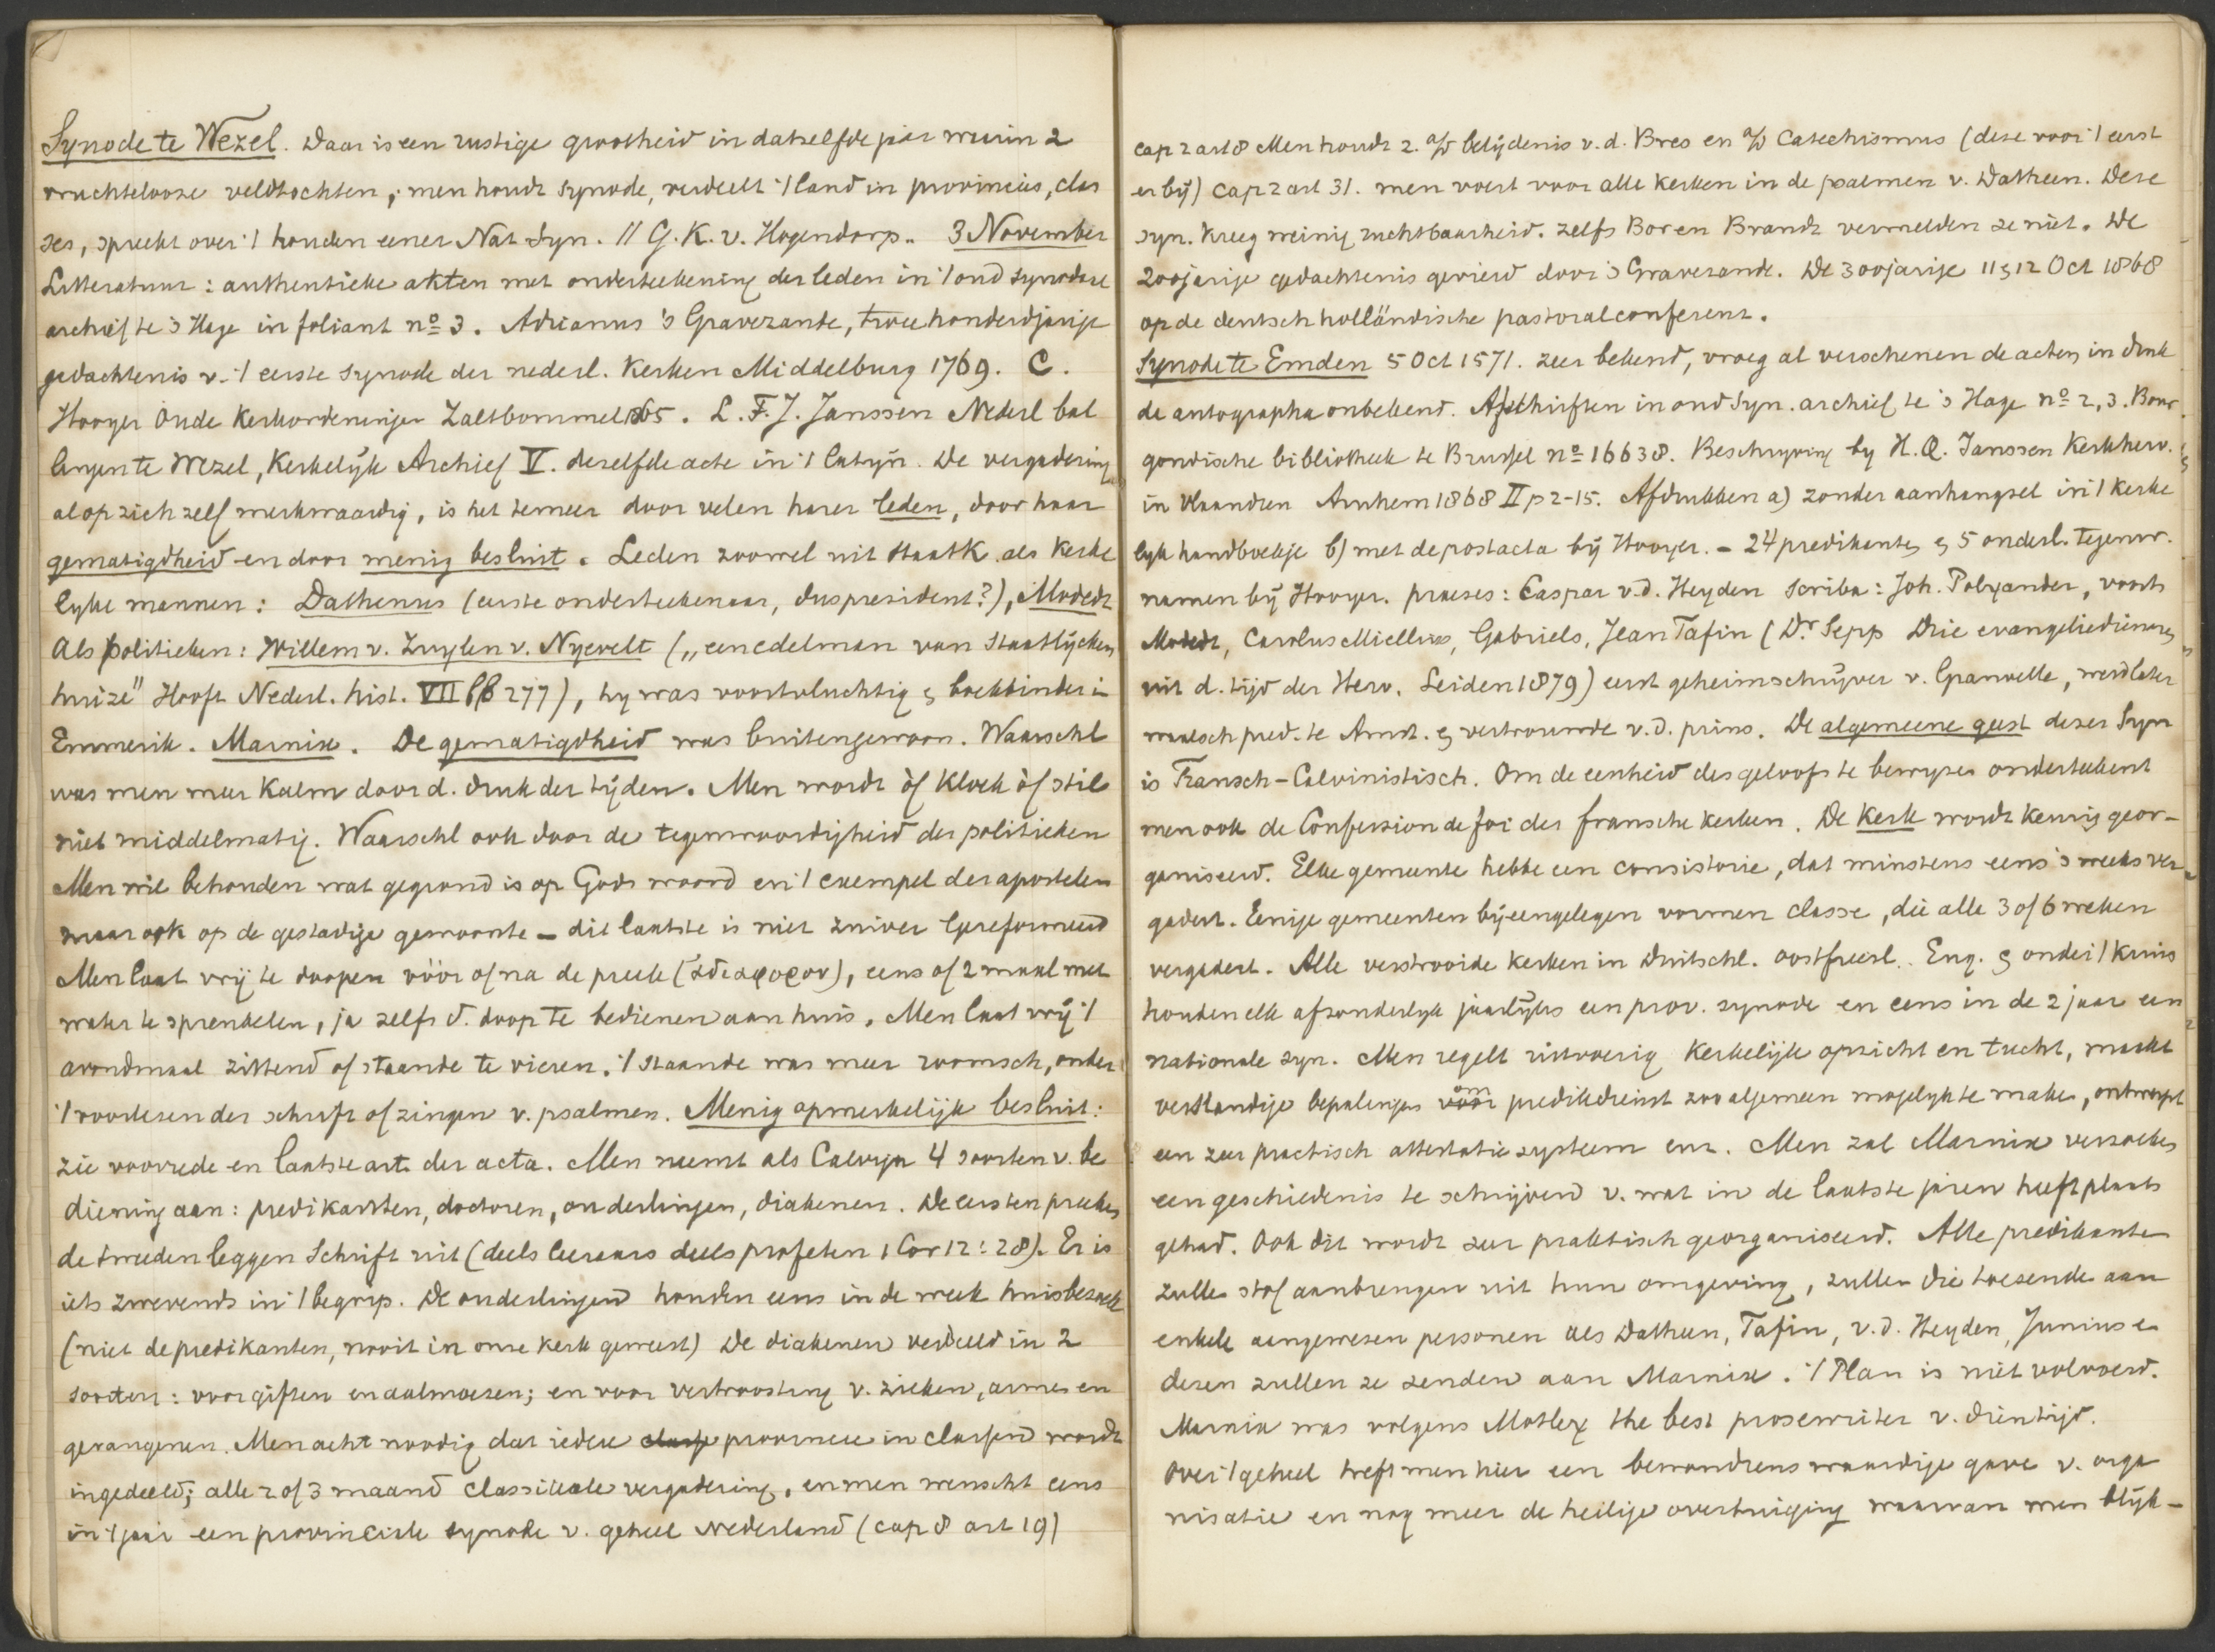 Synode te Wezel. Daar is een rustige grootheid in datzelfde jaar waarin 2
vruchteloose veldtochten, men houdt synode, verdeelt 't land in provincies, clas
ses, spreekt over 't houden eener Nat. Syn. // G. K. v. Hogendorp.. 3 November
Litteratuur: authentieke akten met onderteekening der leden in 't oud synodaal
archief te 's Hage in foliant no 3. Adrianus 's Gravezande, twee honderdjarige
gedachtenis v. 't eerste synode der nederl. Kerken Middelburg 1769. C.
Hooyer Oude Kerkordeningen Zaltbommel 1865. L. F. J. Janssen Nederl bal
lingen te Wezel, Kerkelijk Archief V. deselfde acte in 't Latijn. De vergadering
al op zich zelf merkwaardig, is het temeer door velen harer leden, door haar
gematigdheid en door menig besluit. Leden zoowel uit staatk. als kerke
lyke mannen: Dathenus (eerste onderteekenaar, dus president?), Modedt
Als politieken: Willem v. Zuylen v. Nyevelt („een edelman van Staatlijcken
huize" Hooft Nederl. hist. VII 277), hy was voortvluchtig & boekbinder i
Emmerik. Marnix. De gematigdheid was buitengewoon. Waarschl
was men meer kalm door d. druk der tijden. Men wordt òf kloek òf stil
niet middelmatig. Waarschl ook door de tegenwoordigheid der politieken
Men wil behouden wat gegrond is op Gods woord en 't exempel der apostelen
maar ook op de gestadige gewoonte – dit laatste is niet zuiver Gereformeerd
Men laat vrij te doopen vóór of na de preek (ἀδιαφορον), eens of 2 maal met
water te sprenkelen, ja zelfs d. doop te bedienen aan huis. Men laat vrij 't
avondmaal zittend of staande te vieren. 't staande was meer roomsch, onder
't voorlesen der schrift of zingen v. psalmen. Menig opmerkelijk besluit:
zie voorrede en laatste art. der acta. Men neemt als Calvijn 4 soorten v. be
diening aan: predikanten, doctoren, ouderlingen, diakenen. De eersten preeken
de tweeden leggen Schrift uit (deels leeraars deels profeten 1 Cor 12:28). Er is
iets zwevends in 't begrip. De ouderlingen houden eens in de week huisbezoek
(niet de predikanten, nooit in onze kerk geweest) De diakenen verdeeld in 2
soorten: voor giften en aalmoesen; en voor vertroosting v. zieken, armen en
gevangenen. Men acht noodig dat iedere classe provincie in classen wordt
ingedeeld; alle 2 of 3 maand classicale vergadering, en men wenscht eens
in 't jaar een provinciale synode v. geheel Nederland (cap 8 art 19)
cap 2 art 8 Men houdt z. a/d belijdenis v. d. Bres en a/d Catechismus (deze voor 't eerst
er bij) cap 2 art 31. men voert voor alle kerken in de psalmen v. Datheen. Deze
syn. kreeg weinig ruchtbaarheid. zelfs Bor en Brandt vermelden ze niet. De
200jarige gedachtenis gevierd door 's Gravezande. De 300jarige 11 & 12 Oct 1868
op de deutsch holländische pastoralconferenz.
Synode te Emden 5 Oct 1571. zeer bekend, vroeg al verschenen de acten in druk
de autographa onbekend. Afschriften in oud syn. archief te 's Hage no 2, 3. Bour
gondische bibliotheek te Brussel no 16638. Beschryving by H. Q. Janssen Kerkherv.
in Vlaandren Arnhem 1868 II p 2-15. Afdrukken a) zonder aanhangsel in 't kerke
lyk handboekje b) met de postacta bij Hooyer. – 24 predikanten & 5 ouderl. tegenw.
namen bij Hooyer. praeses: Caspar v. d. Heyden scriba: Joh. Polyander, voorts
Modedt, Carolus Miellius, Gabriels, Jean Tafin (Dr Sepp Drie evangeliedienaren
uit d. tijd der Herv. Leiden 1879) eerst geheimschrijver v. Granvelle, werd later
waalsch pred. te Amst. & vertrouwde v. d. prins. De algemeene geest dezer Syn
is Fransch-Calvinistisch. Om de eenheid des geloofs te bewyzen onderteekent
men ook de Confession de foi der fransche kerken. De kerk wordt keurig geor-
ganiseerd. Elke gemeente hebbe een consistorie, dat minstens eens 's weeks ver
gadert. Eenige gemeenten bijeengelegen vormen classe, die alle 3 of 6 weken
vergadert. Alle verstrooide kerken in Duitschl. oostfriesl. Eng. & onder 't kruis
houden elk afzonderlyk jaarlijks een prov. synode en eens in de 2 jaar een
nationale syn. Men regelt uitvoerig kerkelijk opzicht en tucht, maakt
verstandige bepalingen voor om predikdienst zoo algemeen mogelyk te maken, ontwerpt
een zeer practisch attestatie systeem enz. Men zal Marnix verzoeken
een geschiedenis te schrijven v. wat in de laatste jaren heeft plaats
gehad. Ook dit wordt zeer praktisch georganiseerd. Alle predikante
zullen stof aanbrengen uit hun omgeving, zullen die toezende aan
enkele aangewezen personen als Datheen, Tafin, v. d. Heyden, Junius e
dezen zullen ze zenden aan Marnix. 't Plan is niet volvoerd.
Marnix was volgens Motley the best prosewriter v. dien tijd.
Over 't geheel treft men hier een bewondrens waardige gave v. orga
nisatie en nog meer de heilige overtuiging waarvan men blijk-